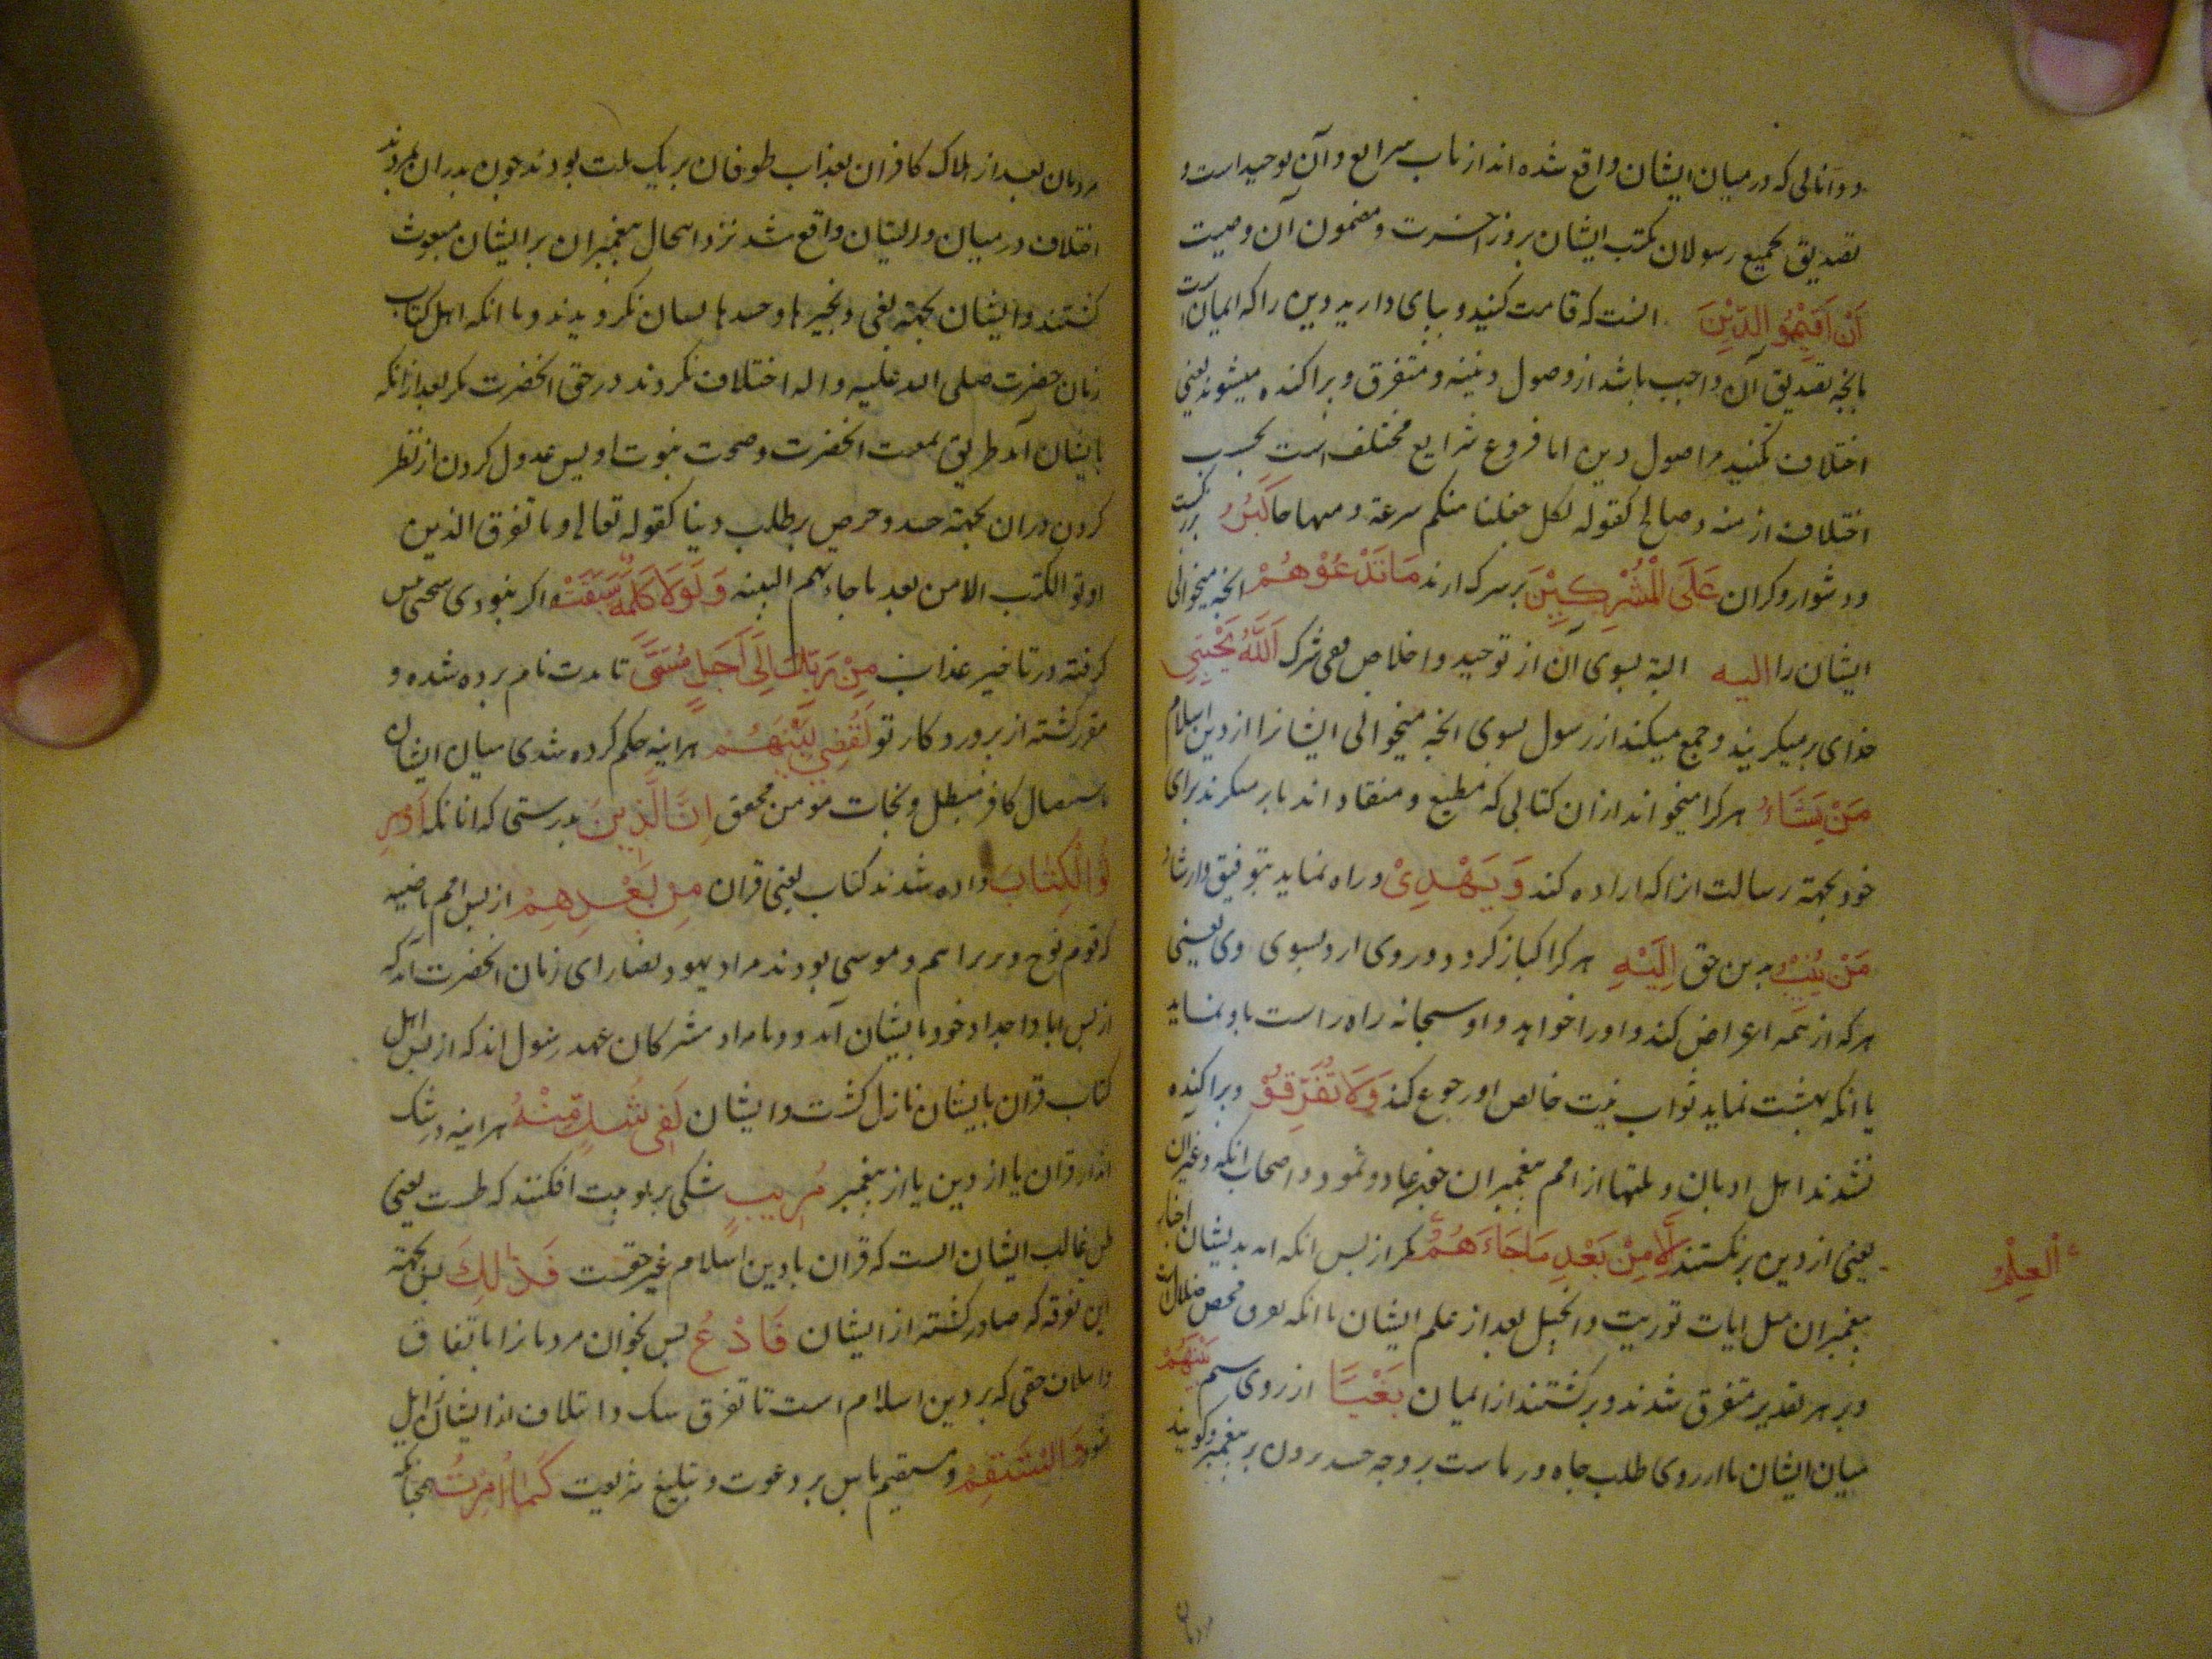 و دانائی که در میان ایشان واقع شده اند از باب سرایع و آن توحید است و
تصدیق بجمیع رسولان بکتب ایشان بروز اخرت و مضمون آن وصیت
أَنْ أَقِيْمُو الدِّيْنَ انست که قامت کنید و بپای دارید دین را که ایمان است
بانچه تصدیق آن واجب باشد از وصول دینیه و متفرق و پراکنده میشوند یعنی
اختلاف نکنید در اصول دین اما فروع شرایع مختلف است بحسب
اختلاف ازمنه و مصالح کقوله لکل جعلنا منکم سرعة و منهاجا كَبُرَ بزرکست
و دشوار و کران عَلَى الْمُشْرِكِيْنَ بر سرک ارند مَا نَدْعُوْهُمْ انچه میخوانی
ایشان را الیه البته بسوی آن از توحید و اخلاص نفی شرک اَللّٰهُ يَجْتَبِي
خدای برمیکزیند و جمع میکند از رسول بسوی انچه میخوانی ایشانرا از دین اسلام
مَنْ يَشَاءُ هر کرا میخواند از ان کتابی که مطیع و منقاد اند یا برمیکزند برای
خود بجهته رسالت انرا که اراده کند وَيَهْدِىْ و راه نماید بتوفیق وارشاد
مَنْ يُنِيْبُ بدین حق اِلَيْهِ هر کرا کباز کردد و روی ارد بسوی وی یعنی
هر که از همه اعراض کند و او را خواهد و او سبحانه راه راست باو نماید
یا انکه بهشت نماید ثواب نیت خالص او رجوع کند وَلَا تَفَرَّقُوْ و پراکنده
نشدند اهل ادیان و ملتها از امم پیغمبران چون عاد و ثمود و اصحاب ایکه و غیر ان
یعنی از دین برنکشتند إِلَّا مِنْ بَعْدِ مَا جَاءَهُمُ مکر از پس انکه امد بدیشان اخبار
اَلْعِلْمُ
پیغمبران مثل ایات توریت و انجیل بعد از علم ایشان با انکه تفرق محض ضلالست
و بر هر تقدیر متفرق شدند و برکشتند از ایمان بَغْيًا از روی ستم بَيْنَهُمْ
میان ایشان یا از روی طلب جاه و ریاست بر وجه حسد بردن بر پیغمبر و کویند
مردمان
مردمان بعد از هلاک کافران بعذاب طوفان بر یک ملت بودند چون پدران بمردند
اختلاف در میان ولد ایشان واقع شد نزد اینحال پیغمبران بر ایشان مبعوث
کشتند و ایشان بجهته بغی و تجبرها و حسدها بسان نکرویدند و با انکه اهل کتاب
زمان حضرت صلی الله علیه و اله اختلاف نکردند در حق انحضرت مکر بعد از انکه
بایشان آمد طریق بعثت انحضرت و صحت نبوت او پس عدول کردن از نظر
کردن دران بجهته حسد و حرص بر طلب دنیا کقوله تعالی و ما تفرق الذین
اوتو الکتب الا من بعد ما جاءتهم البینه وَلَوْلَا كَلِمَةٌ سَبَقَتْ و اکر نبودی سخنی پیش
کرفته در تاخیر عذاب مِنْ رَبِّكَ اِلٰى اَجَلٍ مُسَمًّى تا مدت نام برده شده و
مقرر کشته از پروردکار تو لَقُضِيَ بَيْنَهُمْ هراینه حکم کرده شدی میان ایشان
باستیصال کافر مبطل و نجات مومن محقق اِنَّ الَّذِينَ بدرستی که انانکه اُوْرِ
ثُوا الْكِتَابَ داده شدند کتاب یعنی قران مِنْ بَعْدِهِمْ از پس امم ماضیه
که قوم نوح و ابراهیم و موسی بودند مراد یهود و نصارای زمان انحضرت اند که
از پس ابا و اجداد خود بایشان آمد و یا مراد مشرکان عهد رسول اند که از پس اهل
کتاب قران بایشان نازل کشت و ایشان لَفِي شَكٍّ مِّنْهُ هراینه در شک
اند از قران یا از دین یا از پیغمبر مُرِيبٍ شکی بریبت افکننده که طست یعنی
ظن غالب ایشان انست که قران یا دین اسلام غیر حقست فَذٰلِكَ پس بجهته
این تفرقه که صادر کشته از ایشان فَادْعُ پس بخوان مردمانرا باتفاق
و اسلاف حقی که بر دین اسلام است تا تفرق و اختلاف از ایشان زایل
شود وَاسْتَقِمْ و مستقیم باش بر دعوت و تبلیغ شریعت كَمَا أُمِرْتَ همچنانکه